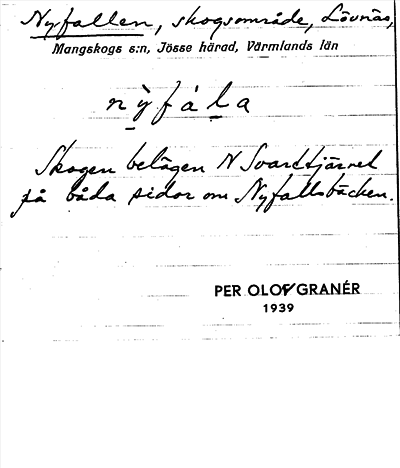 Nyfallen, skogsområde, Lövnäs,
Mangskogs s:n, Jösse härad, Värmlands län
nỳfála
Skogen belägen N Svarttjärnet
på båda sidor om Nyfallsbäcken.
PER OLOF GRANÉR
1939